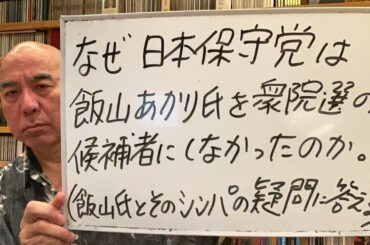 なぜ日本保守党は
飯山あかり氏を衆院選の
候補者にしなかったのか。
(飯山氏とそのシンパの疑問に答え